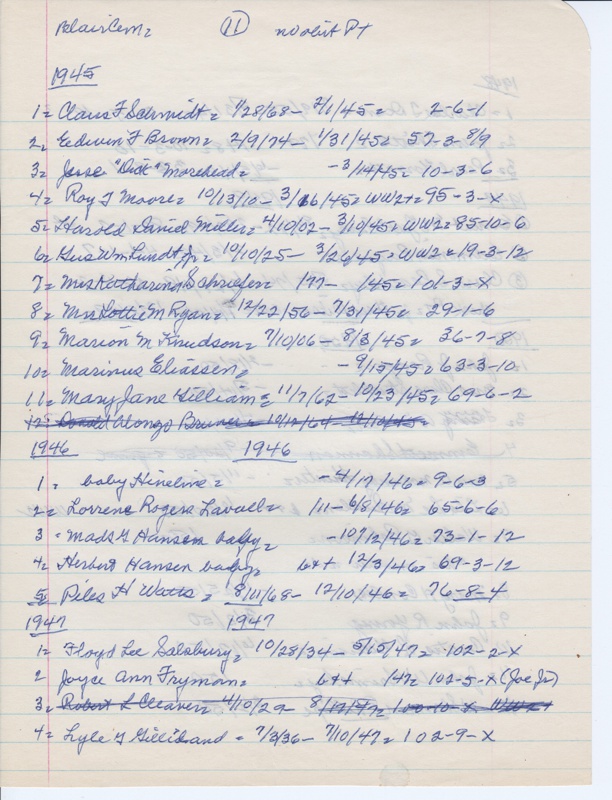 Blair Cem= (11) no obit Pt
1945
1= Claus F Schmidt= 1/28/68- 2/1/45= 2-6-1
2= Edwin F Brown= 2/9/74- 1/31/45= 57-3-8/9
3= Jesse "Dick" Morehead= -3/14/45= 10-3-6
4= Roy J Moore= 10/13/10- 3/16/45= WW2+= 95-3-X
5= Harold David Miller= 4/10/02- 3/10/45= WW2= 85-10-6
6= Gus Wm Lundt Jr= 10/10/25- 3/26/45= WW2= 19-3-12
7= Mrs Katharina Schriefer= /77- /45= 101-3-X
8= Mrs Lottie M Ryan= 12/22/56- 7/31/45= 29-1-6
9= Marion M Knudson= 7/10/06- 8/3/45= 36-7-8
10= Marinus Eliassen= -9/15/45= 63-3-10
11= Mary Jane Gilliam= 11/7/62- 10/23/45= 69-6-2
12= Donald Alonzo Bruner= 10/12/64- 12/10/45=
1946 1946
1= baby Hineline= -4/17/46= 9-6-3
2= Lorrene Rogers Lavuell= /11- 6/8/46= 65-6-6
3= Mads G Hansen baby= -10/12/46= 73-1-12
4= Herbert Hansen baby= b&+ 12/3/46= 69-3-12
5= Piles H Watts= 8/11/68- 12/10/46= 76-8-4
1947 1947
1= Floyd Lee Salsbury= 10/28/34- 5/15/47= 102-2-X
2 Joyce Ann Fryman= b&+ /47= 102-5-X (Joe Jr)
3= Robert L Cleaver= 4/10/29- 8/17/47= 100-10-X WW2+
4= Lyle G Gilliland= 7/3/36- 7/10/47= 102-9-X